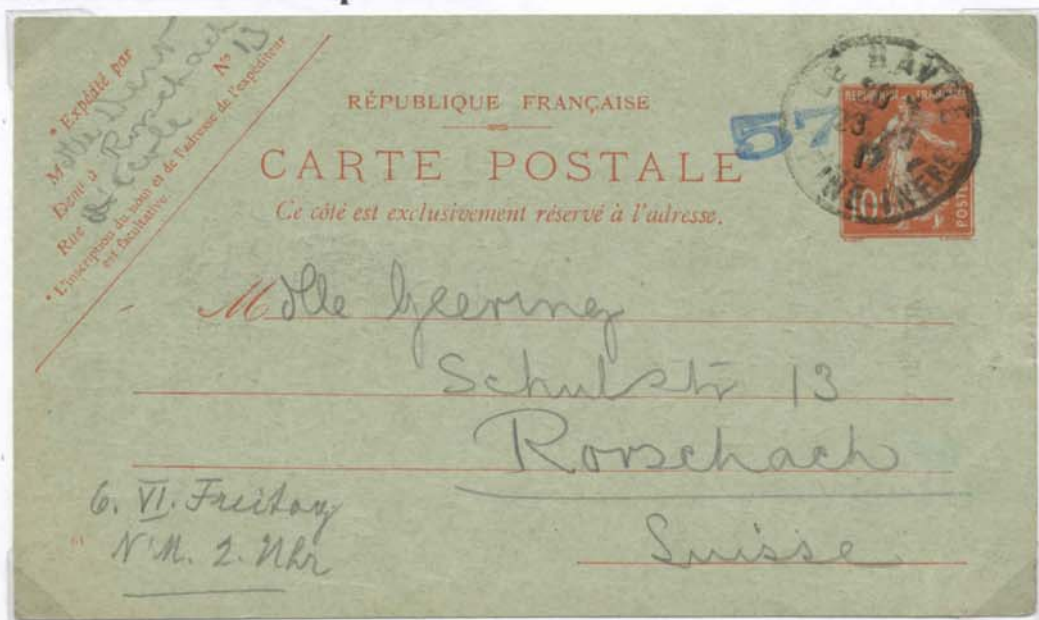 * Expédité par
Mlle
Demt à Rorschach
Rue de école Nº 13
* L'inscription du nom et de l'adresse de l'expéditeur
est facultative.
RÉPUBLIQUE FRANÇAISE
CARTE POSTALE
Ce côté est exclusivement réservé à l'adresse.
57
LE HAVRE
INFRE
RÉPUBLIQUE FRANÇAISE
10
POSTES
Mdlle Geering
Schulstr 13
Rorschach
Suisse
6. VI. Freitag
N'M. 2. Uhr